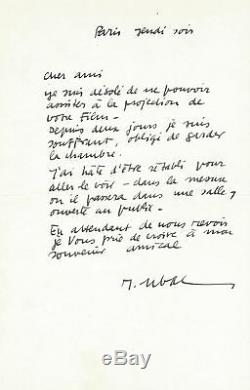 Paris jeudi soir
cher ami
je suis désolé de ne pouvoir
assister à la projection de
votre Film -
depuis deux jours je suis
souffrant, obligé de garder
la chambre.
J'ai hâte d'être rétabli pour
aller le voir - dans la mesure
où il passera dans une salle
ouverte au public -
En attendant de nous revoir
je vous prie de croire à mon
souvenir amical